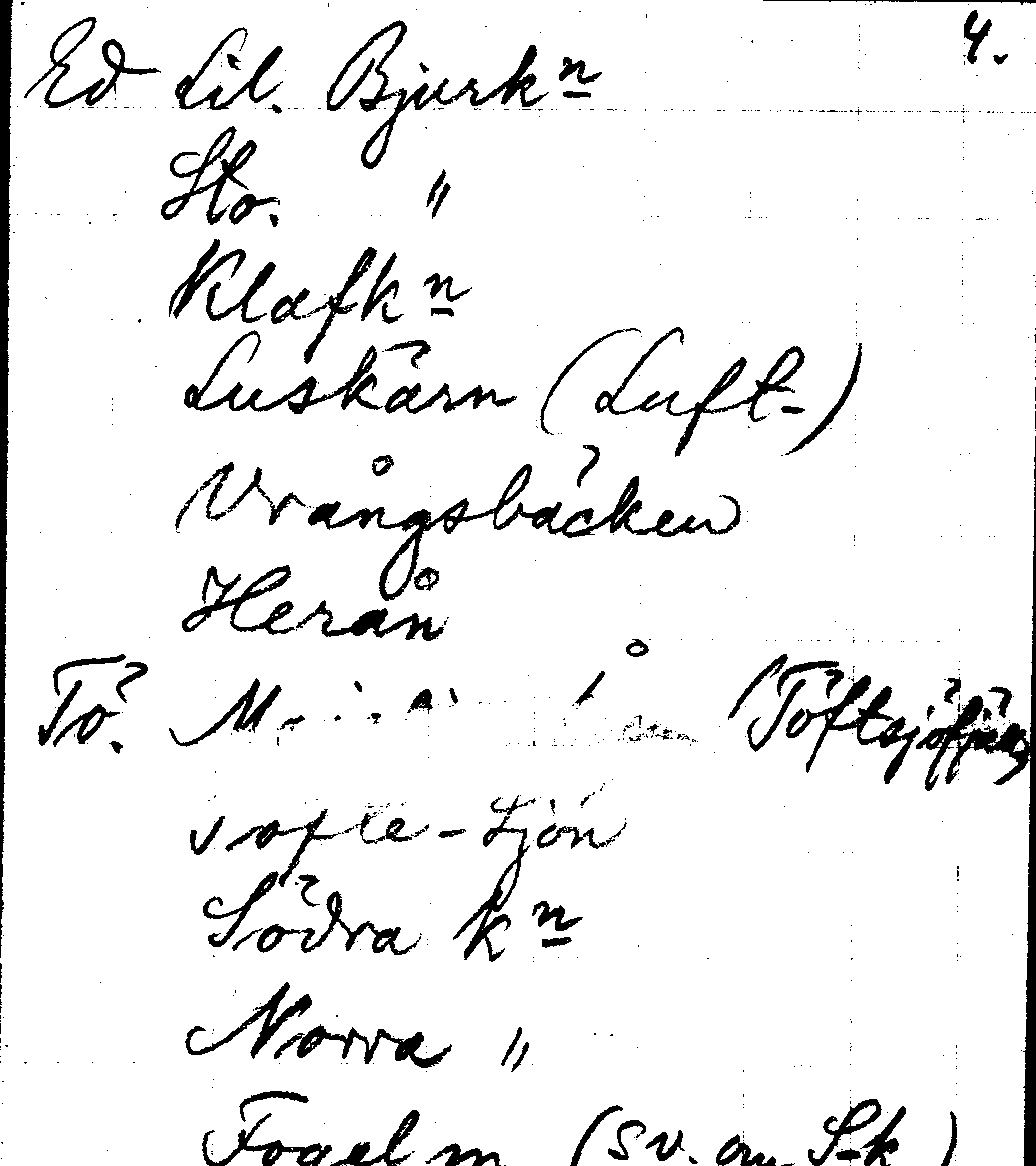 4.
Ed Lil. Bjurkn
Sto. "
Klafkn
Luskärn (Luft-)
Vrångsbäcken
Herån
Tö. (Töftsjöfjäll)
Södra kn
Norra "
Fogel m (SV. om S-k)